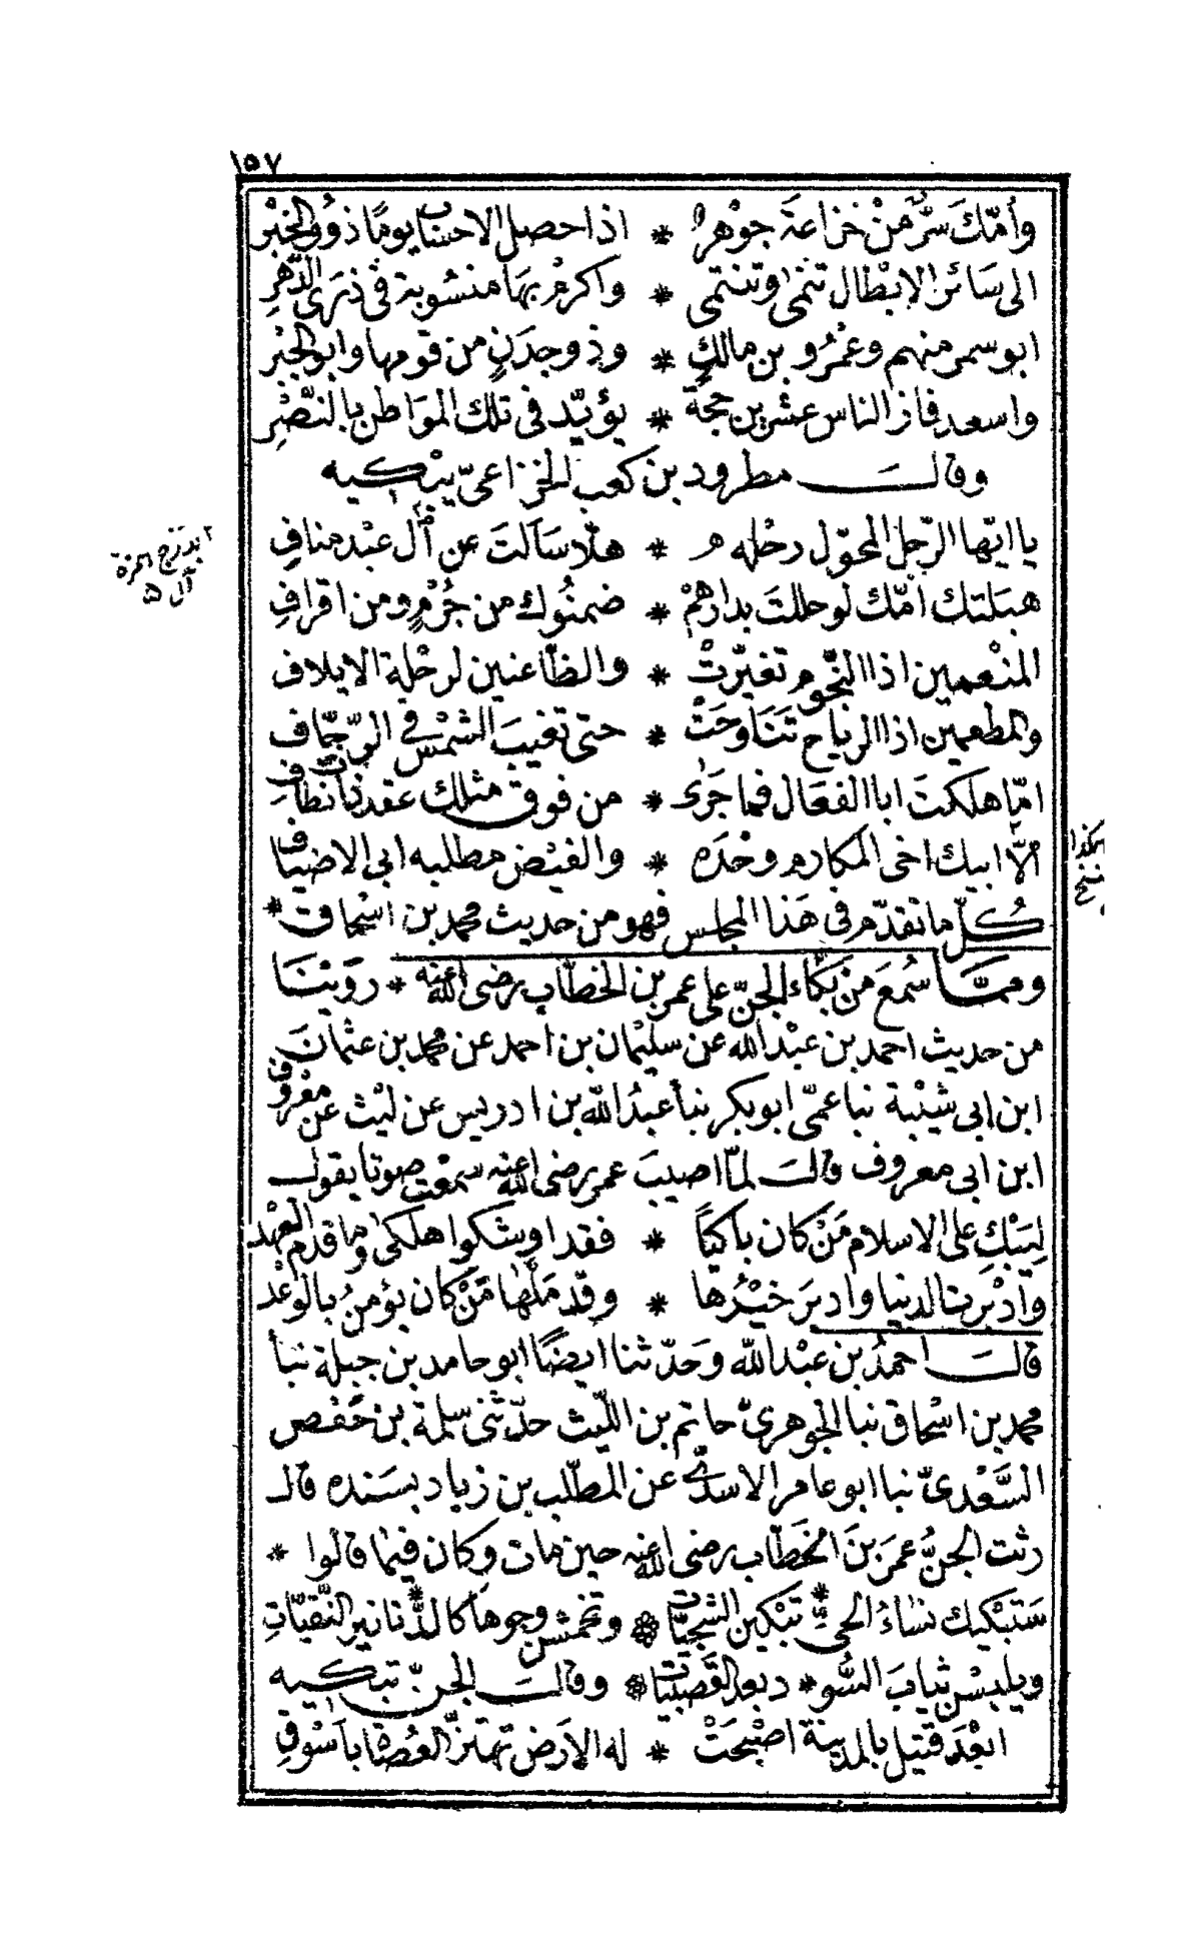 ١٥٧
وأمّكَ سرٌّ منْ خزاعةَ جوْهرٌ * اذا حصل الاحساب يومًا ذوُو الخبْر
الى سَائر الابْطال تنمى وتنتمى * واكرمْ بهَا منسُوبة فى ذرَى الدّهرِ
ابو سمر منهم وعمْرُو بن مالكٍ * وذ وجدَنٍ من قومها وابو الجبْر
واسعد قاد الناس عشرين حجّةً * يؤيّد فى تلك الموَاطن بالنّصْرِ
وقالــت مطرود بن كعب الخزاعىّ يبْكيه
يا ايّها الرّجل المحوّل رحْله * هلّا سَألتَ عن آل عبْد منافِ
هبَلتك أمّك لو حللتَ بدارهمْ * ضمنُوك من جُرْمٍ ومن اقرافِ
المنْعمين اذا النّجوم تغيّرتْ * والظّاعنين لرحْلة الايلاف
والمطعمين اذا الرياح تَنَاوحَتْ * حتى تغيبَ الشمْس فى الرجّاف
امّا هلكتَ ابا الفعَال فما جَرٰى * من فوق مثلك عقد ذات نطافِ
الّا ابيك اخى المكارم وحْدَه * والفيْض مطلبه ابى الاضياف
كُلّ ما تقدّم فى هَذا المجلس فهو من حديث محمد بن اسْحاق *
وممّــا سُمعَ منْ بكَاء الجنّ على عمر بن الخطّاب رضى الله عنه * روَيْنَا
من حديث احمد بن عبْد الله عن سليْمان بن احمد عن محمد بن عثمانَ
ابن ابى شيْبة نبا عمّى ابو بكر نبأ عبدُ الله بن ادريس عن ليْث عن معْروف
ابن ابى معروف قالــت لمّا اصيبَ عمر رضى الله عنه سمعْت صوتا يقول
لِيَبْكِ على الاسلام مَنْ كان باكيًا * فقد اوشكوا هلكى وما قدم العهْد
وأدْبرت الدنيا وادبرَ خيْرُها * وقد مَلّها مَنْ كان يؤمنُ بالوَعْد
قالــت احمدُ بن عبْد الله وحدّثنا ايضًا ابو حامد بن جبلة نبأ
محمد بن اسْحاق نبا الجوهرىّ حاتم بن اللّيث حدّثنى سلمة بن حَفْص
السَّعْدىّ نبا ابو عامر الاسدىّ عن المطّلب بن زياد بسَنده قال
رثت الجنُّ عمرَ بنَ الخطّاب رضى الله عنه حين مات وكان فيما قالوا *
سَتبْكيك نسَاءُ الحىّ * تبْكين الشجيّات * وتخمشن وجوهًا كالدَّنانير النّقيّاتِ
ويلبسْن ثيابَ السُّو * د بعد القَصبيّات * وقالتَ الجنّ تبكيه
ابعْدَ قتيل بالمدينة اصْبحَتْ * له الارَض تهتزّ العُضاة باسْوقِ
آل ۵